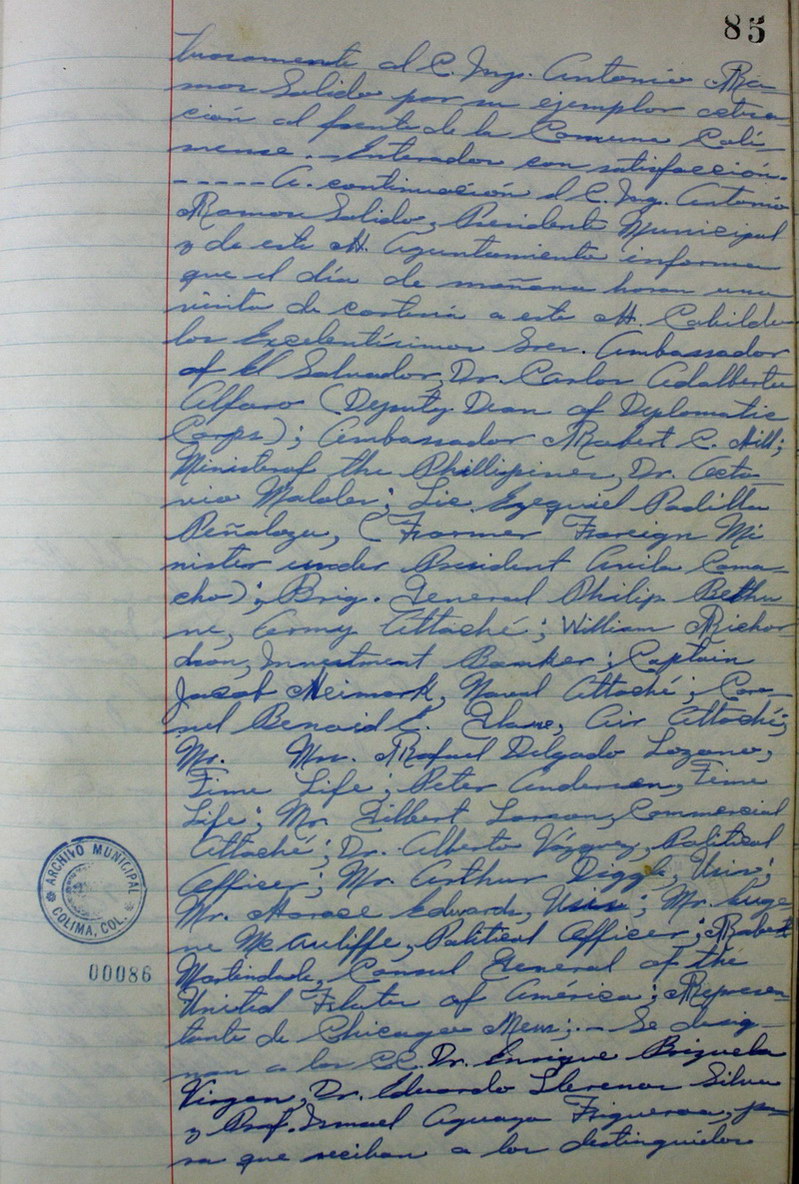 85
tuosamente al C. Ing. Antonio Ra-
mos Salido por su ejemplar actua-
ción al frente de la Comuna Coli-
mense. Enterados con satisfacción.
-----A continuación el C. Ing. Antonio
Ramos Salido, Presidente Municipal
y de este H. Ayuntamiento informa
que el día de mañana harán una
visita de cortesía a este H. Cabildo
los Excelentísimos Sres. Ambassador
of El Salvador, Dr. Carlos Adalberto
Alfaro (Deputy Dean of Diplomatic
Corps); Ambassador Robert C. Hill;
Minister of the Phillipines, Dr. Octa-
vio Maloles; Lic. Ezequiel Padilla
Peñaloza, (Former Foreign Mi
nister under President Avila Cama-
cho); Brig. General Philip Bethu
ne, Army Attaché; William Richar-
dson, Investment Banker; Captain
Jacob Heimark, Naval Attaché; Coro-
nel E. Air Attaché;
Mr. Mrs. Rafael Delgado Lozano,
Time Life; Peter Andersen, Time
Life; Mr. Gilbert Larson, Commercial
Attaché; Dr. Alberto Vázquez, Political
Officer; Mr. Arthur Diggle, Usis;
Mr. Horace Edwards, Usis; Mr. Euge
ne McAuliffe, Political Officer; Robert
Martindale, Consul General of the
United States of América; Represen-
tante de Chicago News;.- Se desig-
nan a los CC. Dr. Enrique Brizuela
Virgen, Dr. Eduardo Llerenas Silva
y Prof. Ismael Aguayo Figueroa, pa-
ra que reciban a los distinguidos
ARCHIVO MUNICIPAL
COLIMA, COL.
00086